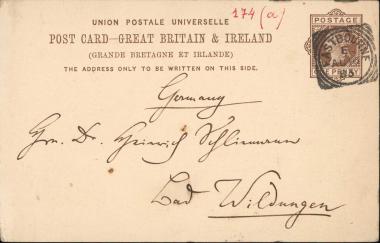 174 (a)
UNION POSTALE UNIVERSELLE
POST CARD—GREAT BRITAIN & IRELAND
(GRANDE BRETAGNE ET IRLANDE)
THE ADDRESS ONLY TO BE WRITTEN ON THIS SIDE.
POSTAGE
ONE PENNY
EASTBOURNE
Germany
Hrn. Dr. Heinrich Schliemann
Bad Wildungen